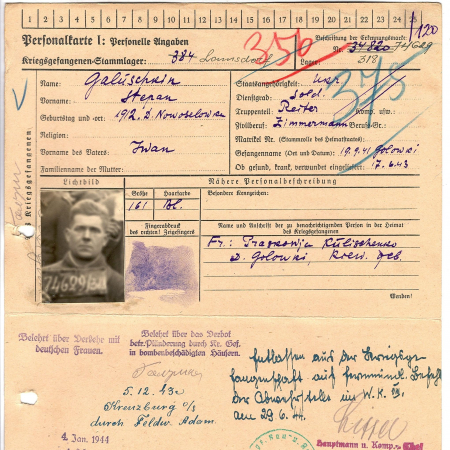 1 2 3 4 5 6 7 8 9 10 11 12 13 14 15 16 17 18 19 20 21 22 23 24 25
/120
Personalkarte I: Personelle Angaben
Beschriftung der Erkennungsmarke
Nr. 34820 74629
Kriegsgefangenen-Stammlager: 384 Lamsdorf
350
Lager: 318
375
Name: Galuschkin
Staatsangehörigkeit: Ukr.
Vorname: Stepan
Dienstgrad: Sold.
Truppenteil: Reiter Komp. usw.:
Geburtstag und -ort: 1912, D. Nowoselowka
Zivilberuf: Zimmermann Berufs-Gr.:
Religion:
Matrikel Nr. (Stammrolle des Heimatstaates):
Vorname des Vaters: Iwan
Gefangennahme (Ort und Datum): 19.9.41 Golowki
Familienname der Mutter:
Ob gesund, krank, verwundet eingeliefert: 17.6.43
des Kriegsgefangenen
Lichtbild
Nähere Personalbeschreibung
Größe
Haarfarbe
Besondere Kennzeichen:
161
Bl.
Fingerabdruck
des rechten! Zeigefingers
Name und Anschrift der zu benachrichtigenden Person in der Heimat
des Kriegsgefangenen
Fr.:
Kulischenko
D. Golowki,
74629
Wenden!
Belehrt über Verkehr mit
deutschen Frauen.
Belehrt über das Verbot
betr. Plünderung durch Kr. Gef.
in bombenbeschädigten Häusern.
5.12.43
Kreuzburg O/S
durch Feldw. Adam.
4. Jan. 1944
Entlassen aus der Kriegsge
fangenschaft auf Befehl
der Abwehrstelle im W.K. VIII.
am 29.6.44.
Hauptmann u. Komp.-Chef